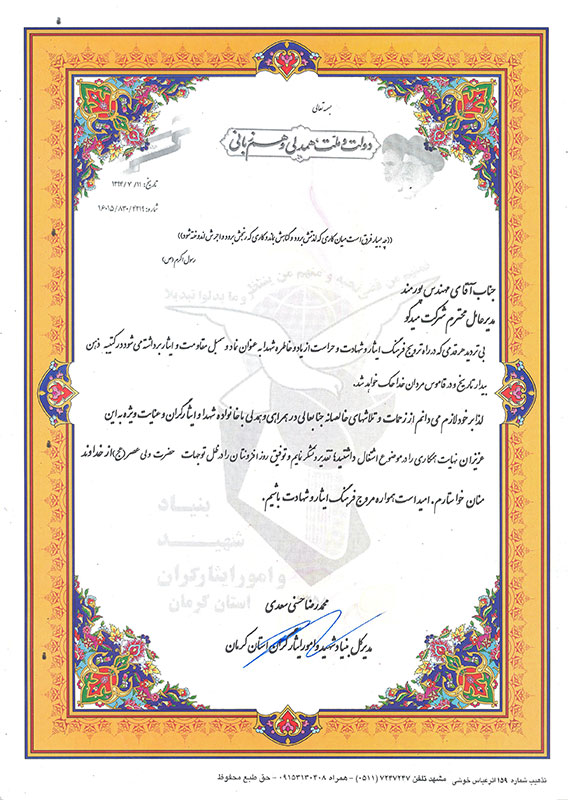 بسمه تعالی
دولت و ملت، همدلی و همزبانی
تاریخ: ۱۳۹۴/۷/۱۱
شماره: ۱۶۰۱۵/۸۳۰/۴۲۱۹
((چه بسیار فرق است میان کاری که لذتش برود و گناهش بماند و کاری که رنجش برود و اجرش اندوخته شود))
رسول اکرم (ص)
جناب آقای مهندس پورمند
مدیرعامل محترم شرکت میدکو
بی تردید هر قدمی که در راه ترویج فرهنگ ایثار و شهادت و حراست از یاد و خاطره شهدا به عنوان نماد و سمبل مقاومت و ایثار برداشته می شود در کتیبه ذهن
بیدار تاریخ و در قاموس مردان خدا حک خواهد شد.
لذا بر خود لازم می دانم از زحمات و تلاشهای خالصانه جنابعالی در همراهی و همدلی با خانواده شهدا و ایثارگران و عنایت ویژه به این
عزیزان نهایت همکاری را در موضوع اشتغال داشتید؛ تقدیر و تشکر نمایم و توفیق روز افزونتان را در ظل توجهات حضرت ولی عصر (عج) از خداوند
منان خواستارم. امید است همواره مروج فرهنگ ایثار و شهادت باشیم.
بنیاد
شهید
و امور ایثارگران
استان کرمان
محمدرضا حسنی سعدی
مدیرکل بنیاد شهید و امور ایثارگران استان کرمان
تذهیب شماره ۱۵۹ اثر عباس خوشی مشهد تلفن ۷۲۴۷۲۴۷ (۰۵۱۱) - همراه ۰۹۱۵۳۱۳۰۴۰۸ - حق طبع محفوظ